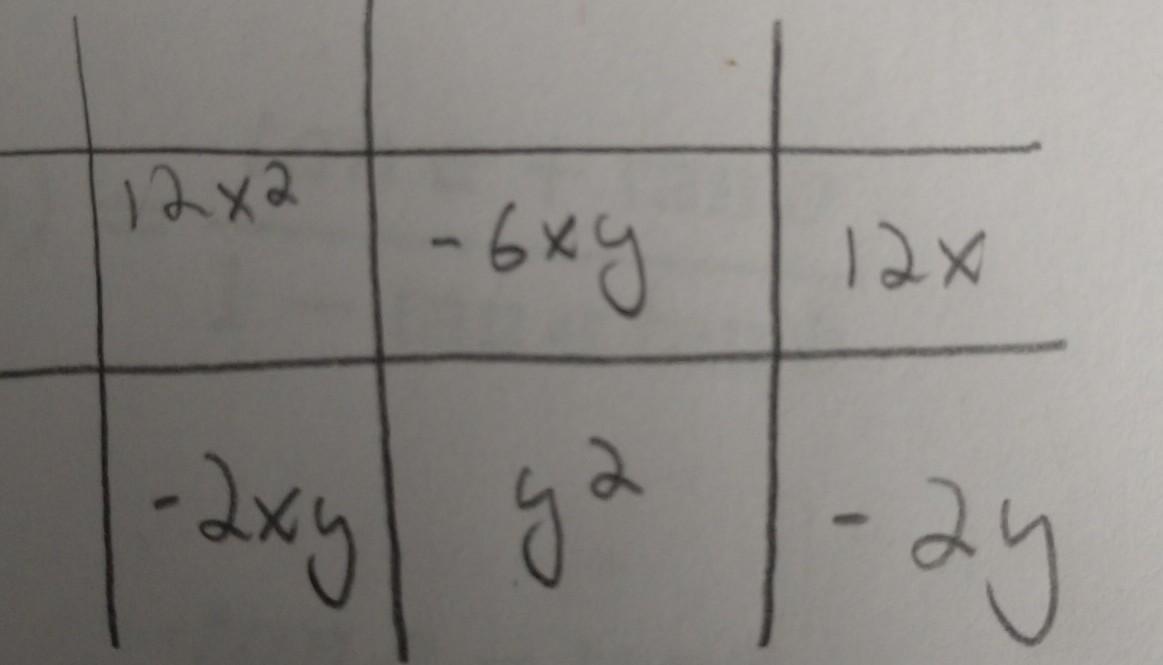 12x2 -6xy 12x
-2xy y2 -2y